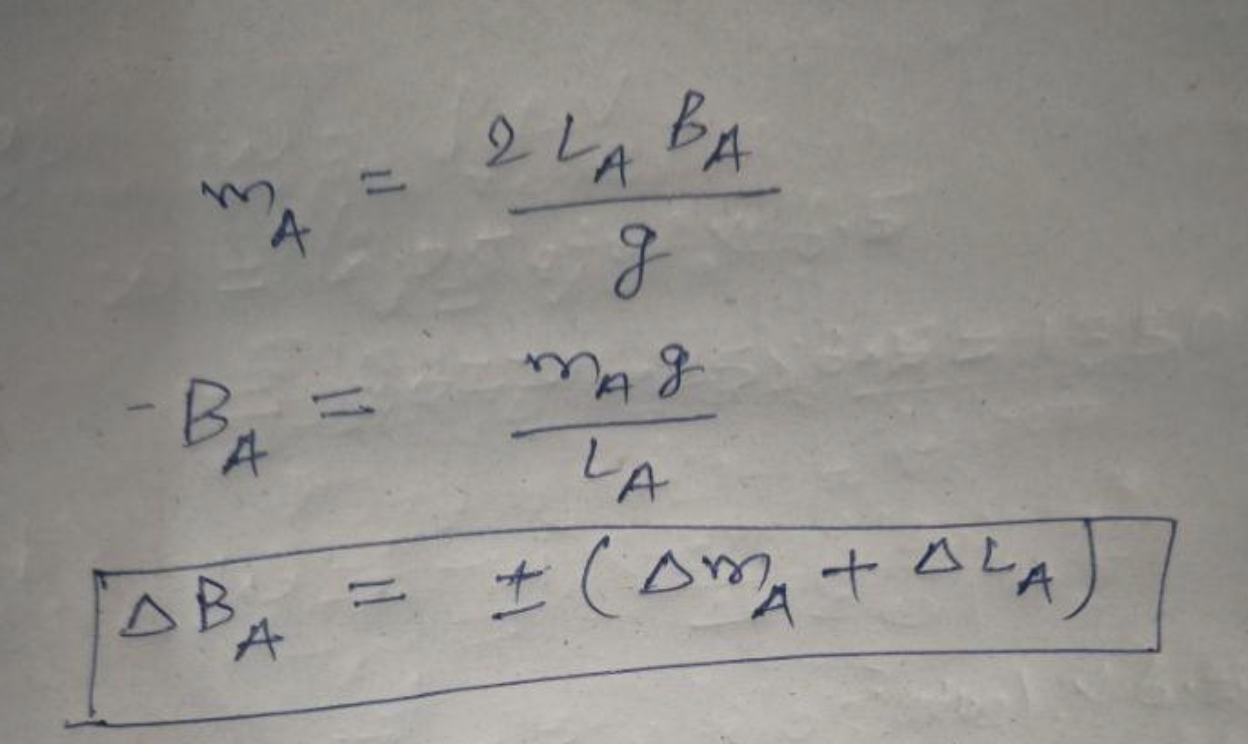 m_A = 2 L_A B_A / g
- B_A = m_A g / L_A
Δ B_A = ± ( Δ m_A + Δ L_A )